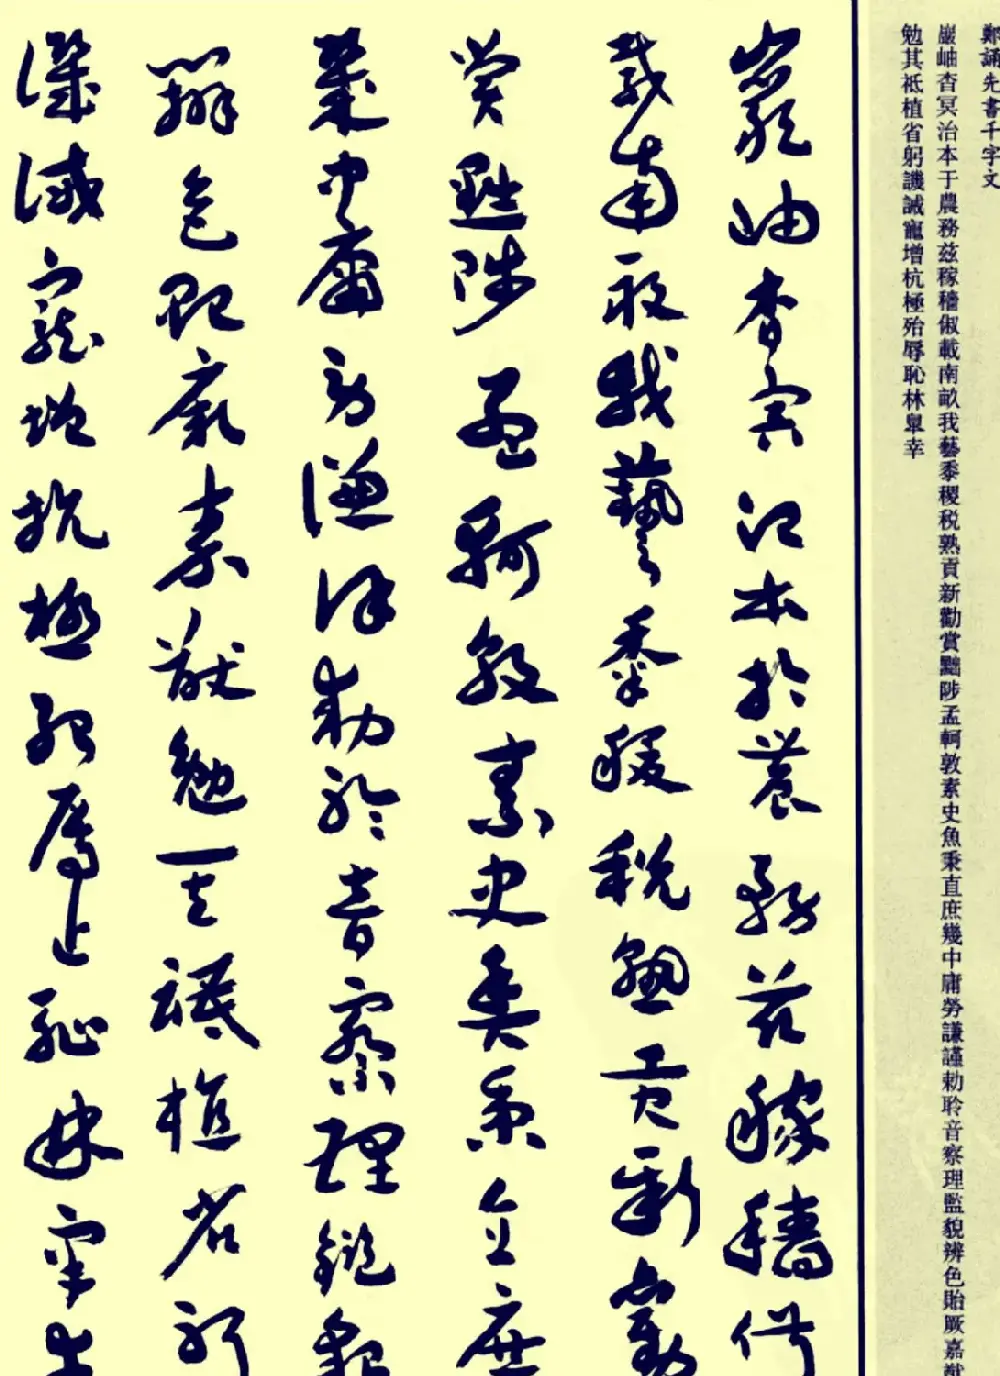 鄭誦先書千字文
巖岫杳冥治本于農務茲稼穡俶載南畝我藝黍稷税熟貢新勸賞黜陟孟軻敦素史魚秉直庶幾中庸勞謙謹勅聆音察理監貌辨色貽厥嘉猷
勉其祗植省躬譏誡寵增抗極殆辱恥林臯幸
巖岫杳冥治本於農務茲稼穡俶
載南畝我藝黍稷税熟貢新勸
賞黜陟孟軻敦素史魚秉直庶
幾中庸勞謙謹勅聆音察理鑑貌
辨色貽厥嘉猷勉其祗植省躬
譏誡寵增抗極殆辱近恥林皋幸